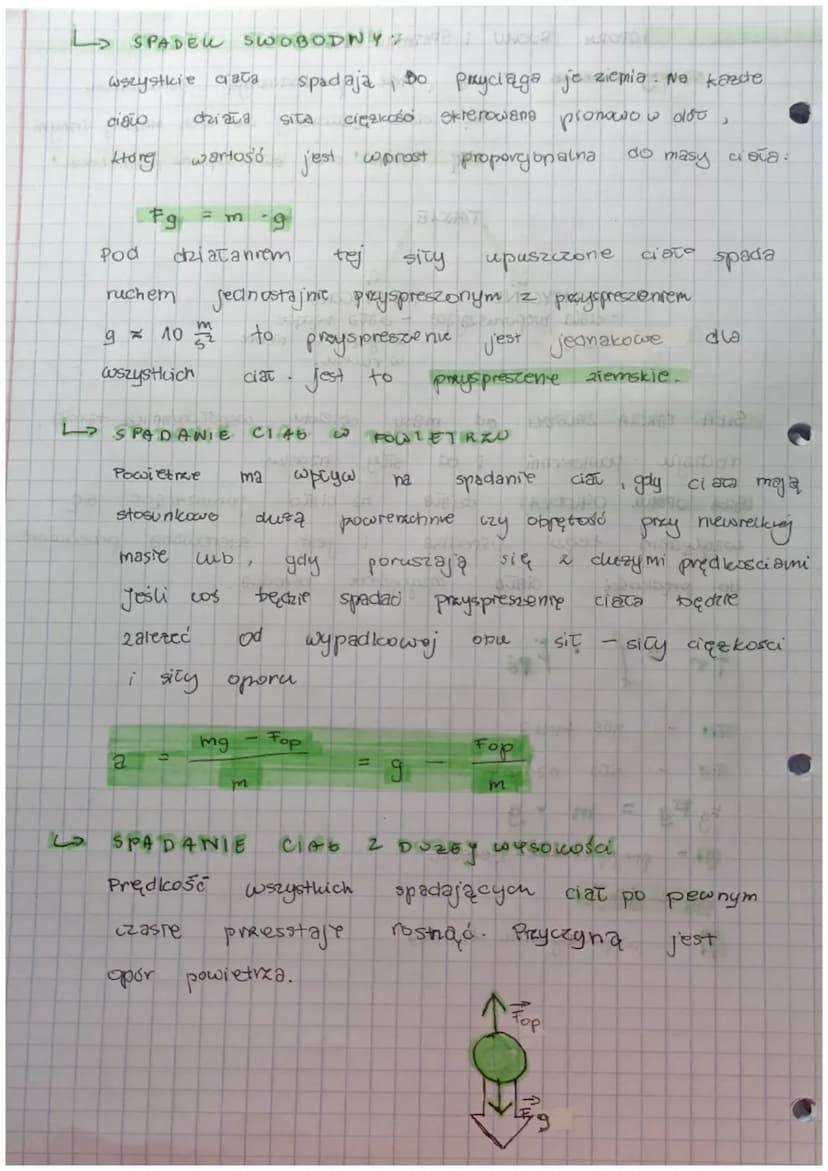 ↳ SPADEK SWOBODNY:
wszystkie ciała spadają, bo przyciąga je ziemia. Na każde
ciało działa siła ciężkości skierowana pionowo w dół,
której wartość jest wprost proporcjonalna do masy ciała:
Fg = m · g
Pod działaniem tej siły upuszczone ciało spada
ruchem jednostajnie przyspieszonym z przyspieszeniem
g ≈ 10 m/s² to przyspieszenie jest jednakowe dla
wszystkich ciał. jest to przyspieszenie ziemskie.
↳ SPADANIE CIAŁ W POWIETRZU
Powietrze ma wpływ na spadanie ciał, gdy ciała mają
stosunkowo dużą powierzchnie czy objętość przy niewielkiej
masie lub, gdy poruszają się z dużymi prędkościami
Jeśli coś będzie spadać przyspieszenie ciała będzie
zależeć od wypadkowej obu sił – siły ciężkości
i siły oporu
a = mg - Fop / m = g - Fop / m
↳ SPADANIE CIAŁ Z DUŻEJ WYSOKOŚCI
Prędkość wszystkich spadających ciał po pewnym
czasie przesstaje rosnąć. Przyczyną jest
opór powietrza.
Fop
Fg